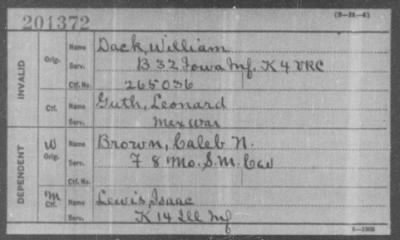 201372
(3-21-4)
INVALID
Orig. Name Dack, William
Serv. B 32 Iowa Inf. K 4 VRC
Ctf. No. 265036
Ctf. Name Guth, Leonard
Serv. Mex War
DEPENDENT
W Orig. Name Brown, Caleb N.
Serv. F 8 Mo. S.M. Cav
Ctf. No.
M Ctf. Name Lewis, Isaac
Serv. K 14 Ill Inf